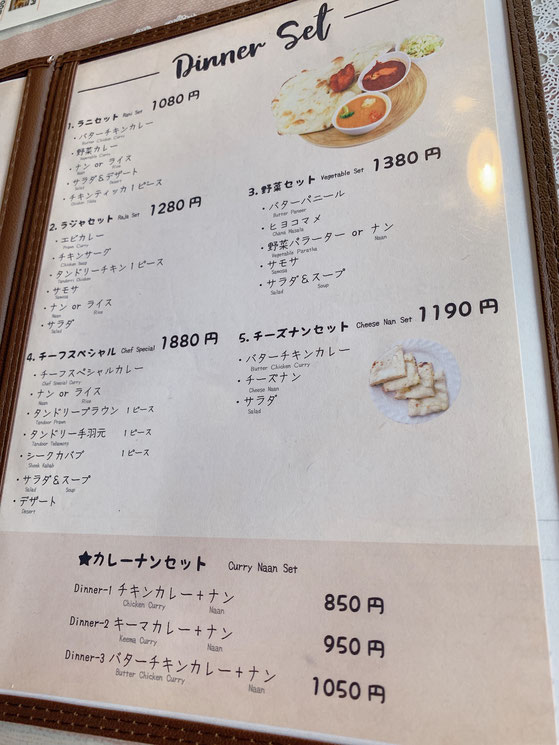 Dinner Set
1. ラニセット Rani Set 1080円
・バターチキンカレー
Butter Chicken Curry
・野菜カレー
Vegetable Curry
・ナン or ライス
Naan Rice
・サラダ&デザート
Salad Desert
・チキンティッカ 1ピース
Chicken Tikka
2. ラジャセット Raja Set 1280円
・エビカレー
Prawn Curry
・チキンサーグ
Chicken Saag
・タンドリーチキン 1ピース
Tandoori Chicken
・サモサ
Samosa
・ナン or ライス
Naan Rice
・サラダ
Salad
3. 野菜セット Vegetable Set 1380円
・バターパニール
Butter Paneer
・ヒヨコマメ
Chana Masala
・野菜パラーター or ナン
Vegetable Paratha Naan
・サモサ
Samosa
・サラダ&スープ
Salad Soup
4. チーフスペシャル Chef Special 1880円
・チーフスペシャルカレー
Chef Special Curry
・ナン or ライス
Naan Rice
・タンドリープラウン 1ピース
Tandoor Prawn
・タンドリー手羽元 1ピース
Tandoor
・シークカバブ 1ピース
Sheek Kabab
・サラダ&スープ
Salad Soup
・デザート
Desert
5. チーズナンセット Cheese Nan Set 1190円
・バターチキンカレー
Butter Chicken Curry
・チーズナン
Cheese Naan
・サラダ
Salad
★カレーナンセット Curry Naan Set
Dinner-1 チキンカレー+ナン 850円
Chicken Curry Naan
Dinner-2 キーマカレー+ナン 950円
Keema Curry Naan
Dinner-3 バターチキンカレー+ナン 1050円
Butter Chicken Curry Naan